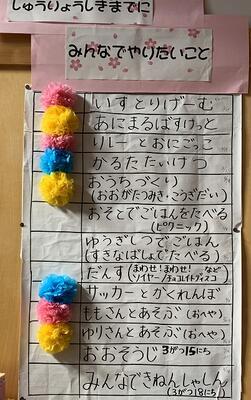 しゅうりょうしきまでに
みんなでやりたいこと
いすとりげーむ
あにまるばすけっと
リレーとおにごっこ
かるたたいけつ
おうちづくり
(おおがたつみき・こうぎだい)
おそとでごはんをたべる
(ピクニック)
ゆうぎしつでごはん
(すきなばしょでたべる)
だんす(まわせ!まわせ! など
ソイヤー/チョコレイトディスコ
サッカーとかくれんぼ
ももさんとあそぶ(おへや)
ゆりさんとあそぶ(おへや)
おおそうじ 3がつ15にち
みんなできねんしゃしん
(3がつ18にち)